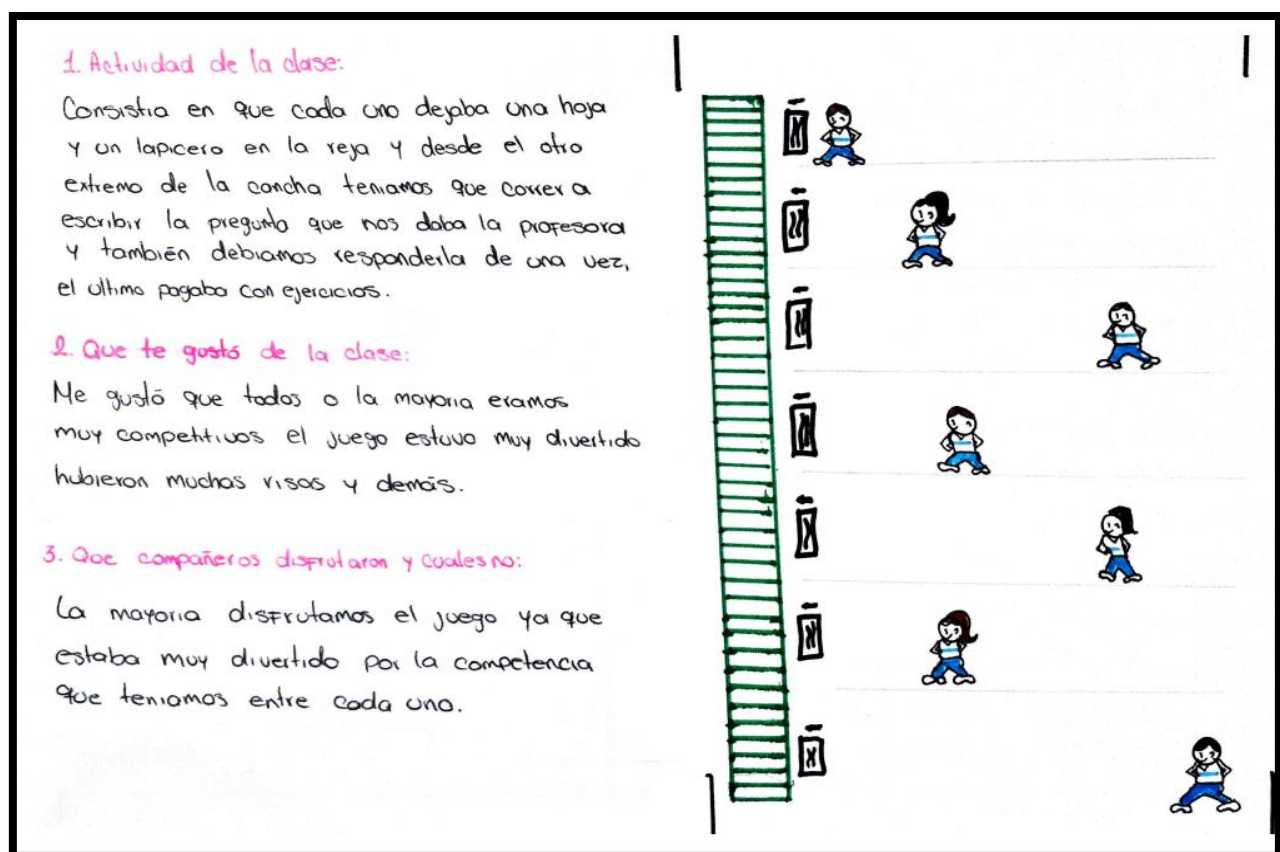 1. Actividad de la clase:
Consistia en que cada uno dejaba una hoja
y un lapicero en la reja y desde el otro
extremo de la cancha teniamos que correr a
escribir la pregunta que nos daba la profesora
y también debiamos responderla de una vez,
el ultimo pagaba con ejercicios.
2. Que te gustó de la clase:
Me gustó que todos o la mayoria eramos
muy competitivos el juego estuvo muy divertido
hubieron muchas risas y demás.
3. Que compañeros disfrutaron y cuales no:
La mayoria disfrutamos el juego ya que
estaba muy divertido por la competencia
que teniamos entre cada uno.